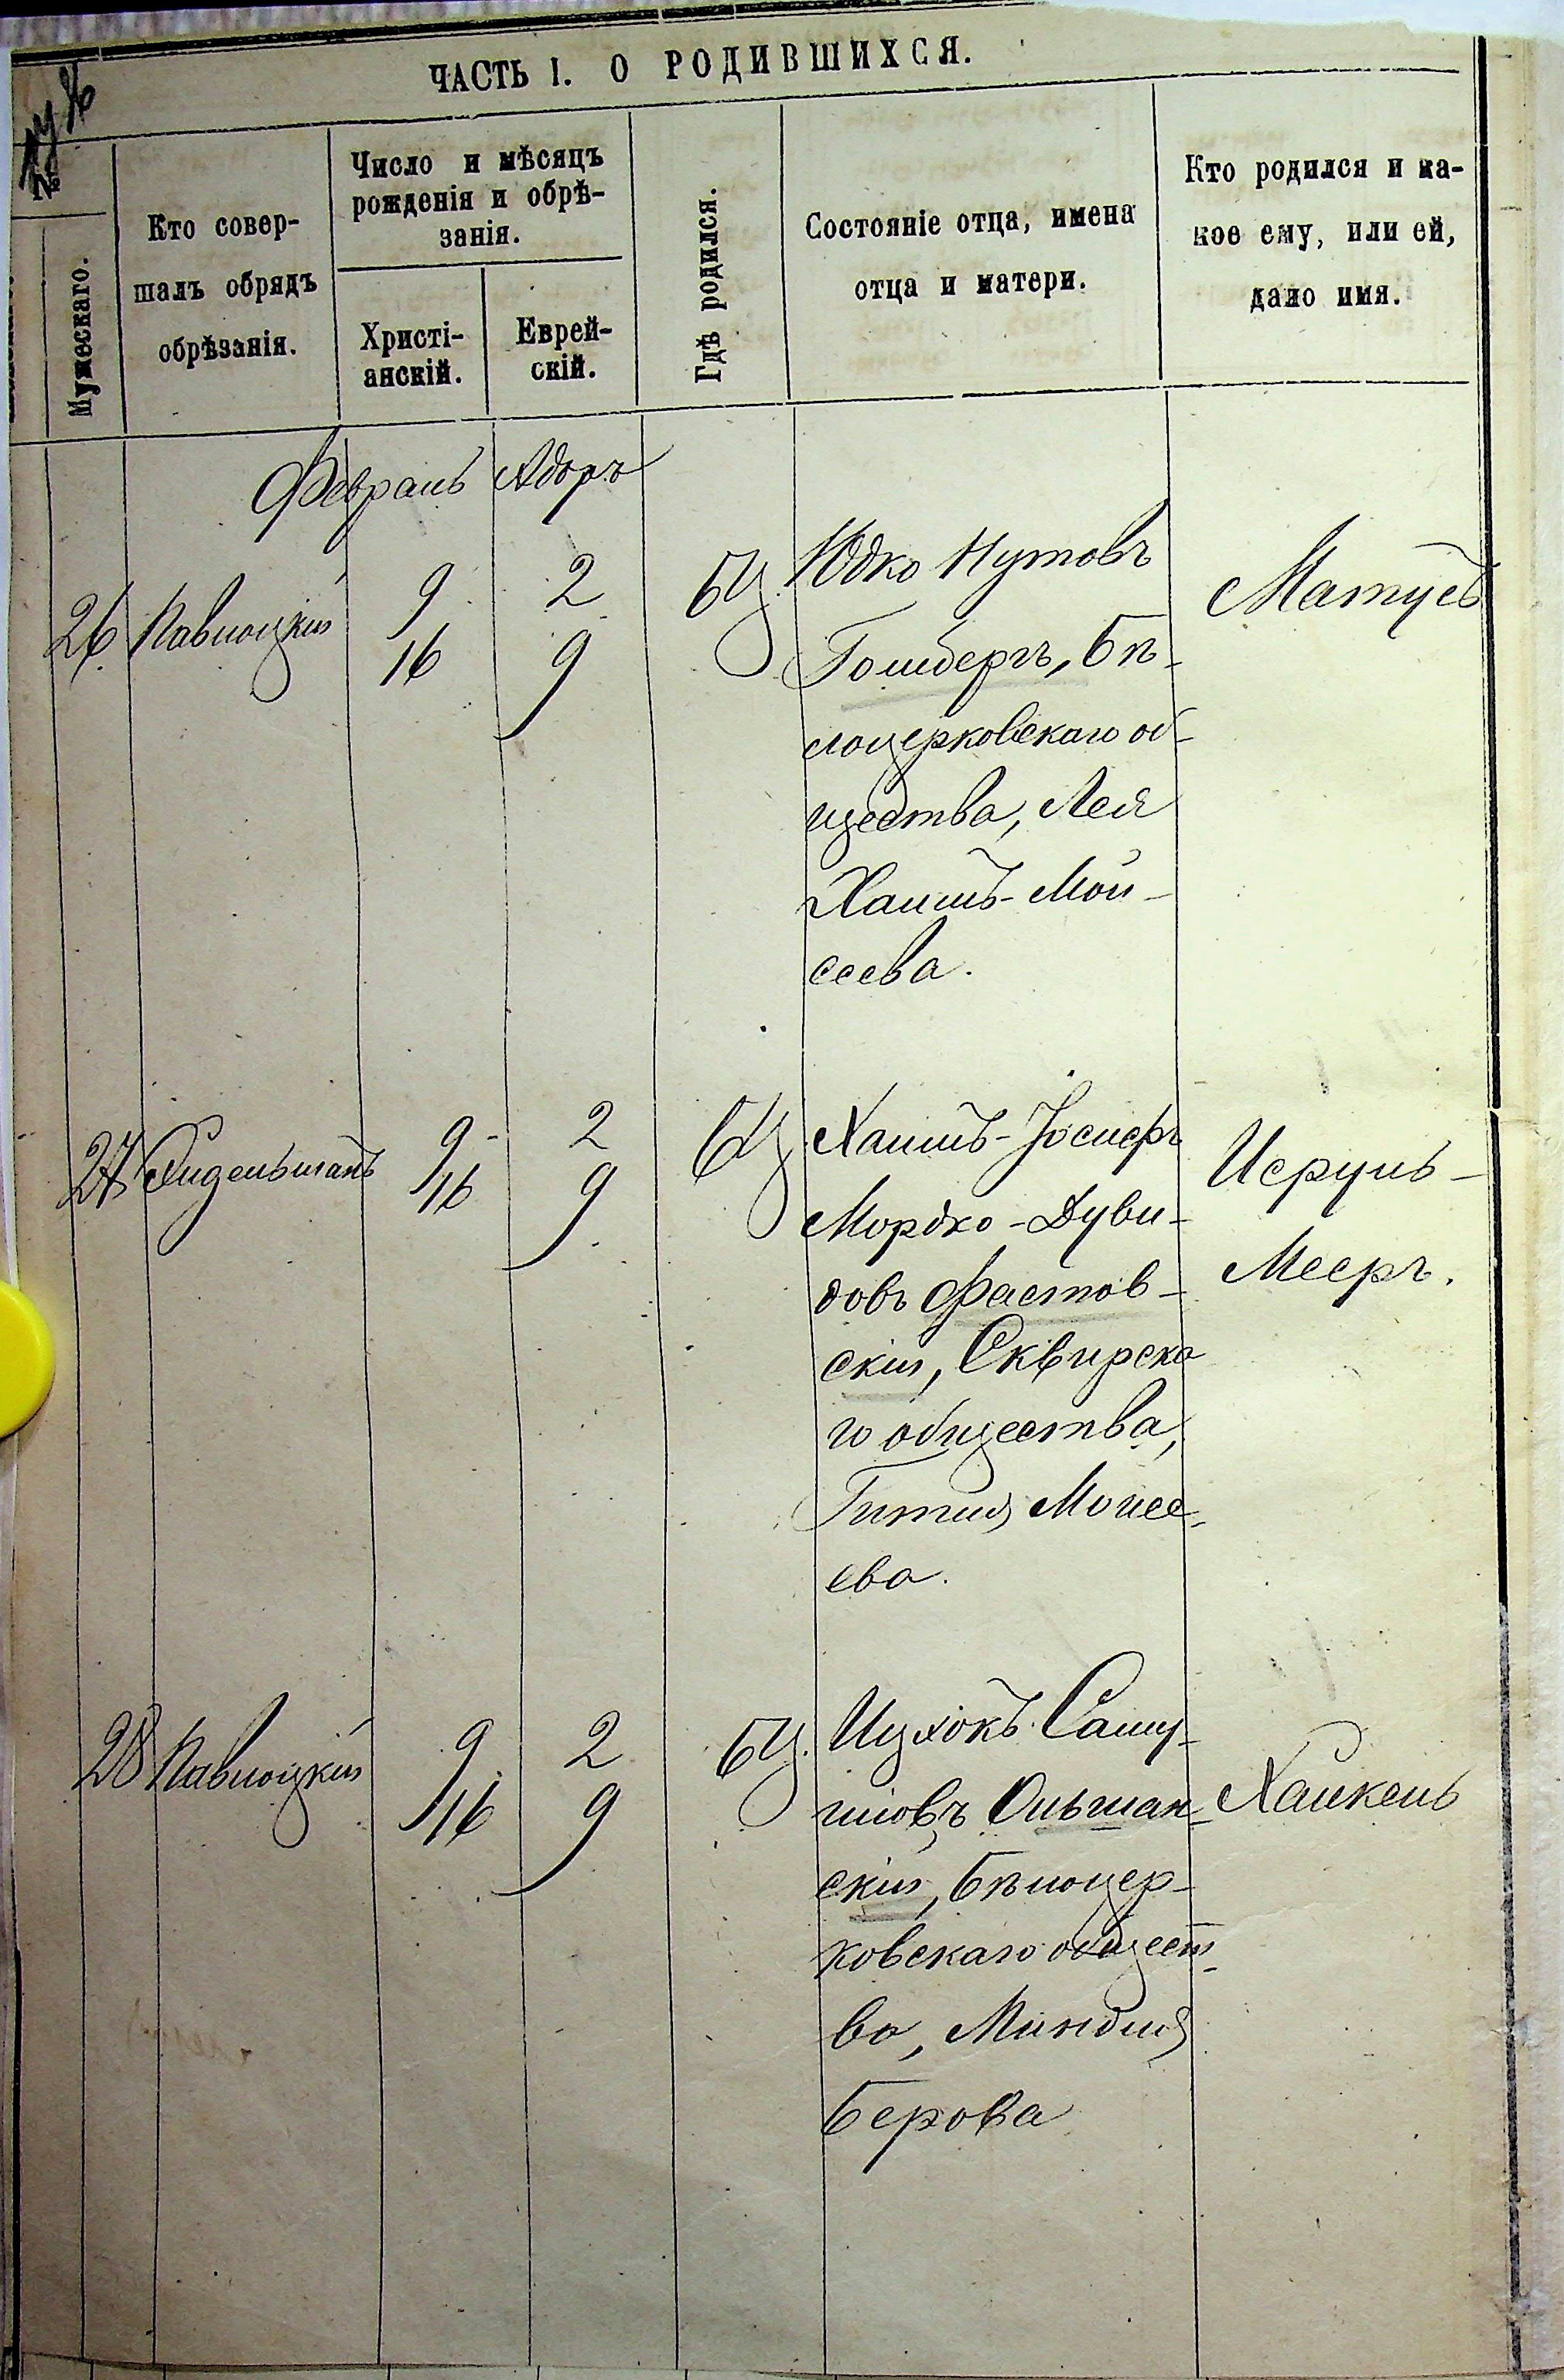 ЧАСТЬ I. О РОДИВШИХСЯ.
№
Мужескаго.
Кто совер-
шалъ обрядъ
обрѣзанія.
Число и мѣсяцъ
рожденія и обрѣ-
занія.
Христі-
анскій.
Еврей-
скій.
Гдѣ родился.
Состояніе отца, имена
отца и матери.
Кто родился и ка-
кое ему, или ей,
дано имя.
Февраль Адоръ
26 Павлоцкій 9 2 БЦ. Юдко Нутовъ Матусъ
16 9 Гольдбергъ, Бѣ-
лоцерковскаго об-
щества, Лея
Хаимъ-Мой-
сеева.
27 Фидельманъ 9 2 БЦ. Хаимъ-Іосифъ Исруль-
16 9 Мордко-Дуви-
довъ Фастов- Мееръ.
скій, Сквирска
го общества,
Гитля Мойсе-
ева.
28 Павлоцкій 9 2 БЦ. Ицхокъ Саму-
16 9 иловъ Ольшан- Хаикель
скій, Бѣлоцер-
ковскаго общест-
ва, Миндля
Берова